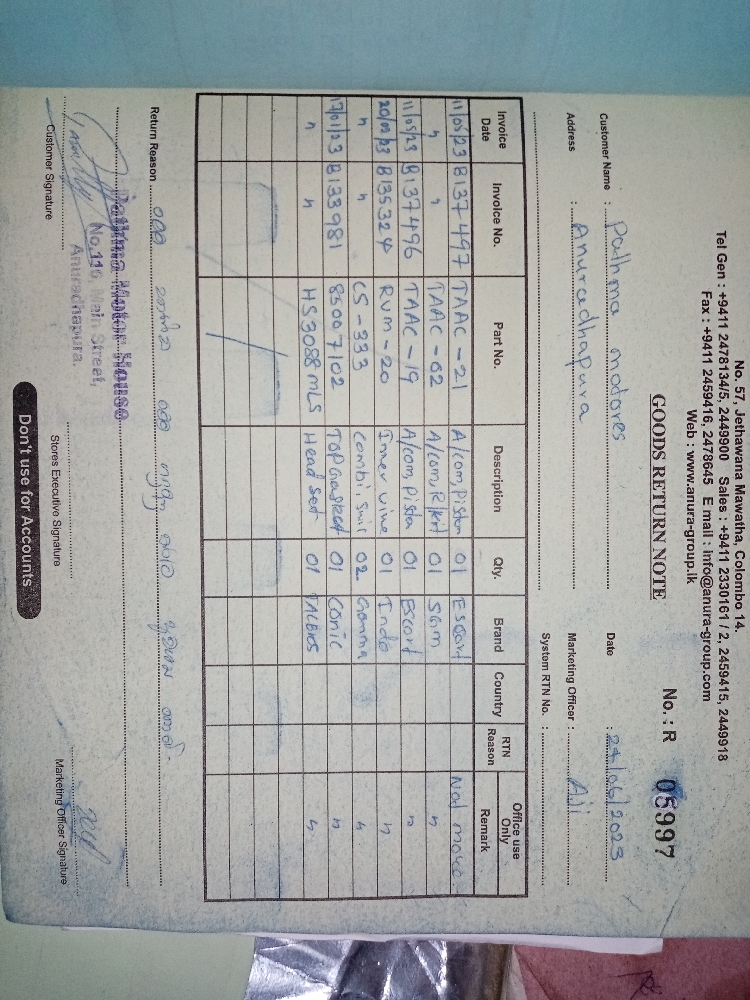 No. 57, Jethawana Mawatha, Colombo 14.
Tel Gen : +9411 2478134/5, 2449900 Sales : +9411 2330161 / 2, 2459415, 2449918
Fax : +9411 2459416, 2478645 E mail : info@anura-group.com
Web : www.anura-group.lk
GOODS RETURN NOTE
No. : R 05997
Customer Name : Pathma motores
Date : 24/06/2023
Address : Anuradhapura
Marketing Officer : Aji
System RTN No. :
Invoice Date Invoice No. Part No. Description Qty. Brand Country RTN Reason Office use Only Remark
11/05/23 B137497 TAAC-21 A/com, Piston 01 Escort Not move
" " TAAC-02 A/com, R/Kit 01 SGm "
11/05/23 B137496 TAAC-19 A/com, Piston 01 Escort "
B135324 RVM-20 01 Indo "
" " CS-333 Combi, Swic 02 Gamma "
17/01/23 B133981 85007102 Top Gasket 01 Conic "
" " HS3088MLS Head Set 01 "
Return Reason
Pathma Motor House
No.116, Main Street,
Anuradhapura.
Customer Signature
Stores Executive Signature
Marketing Officer Signature
Don't use for Accounts